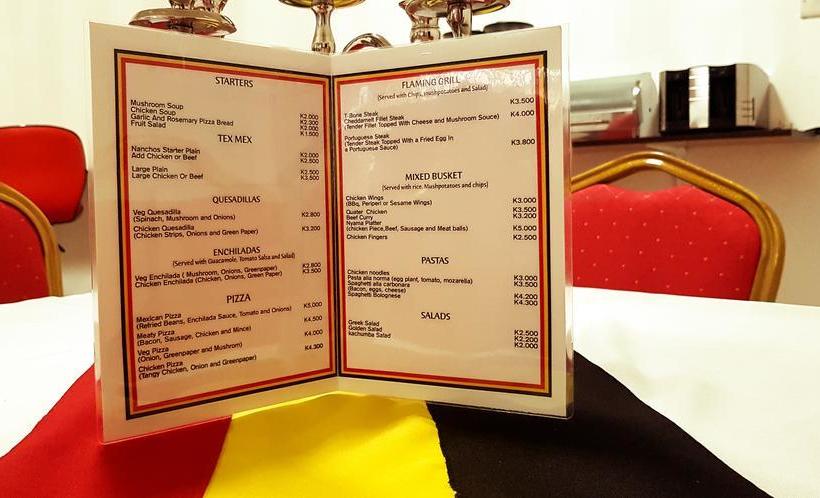 STARTERS
Mushroom Soup K2.000
Chicken Soup K2.300
Garlic And Rosemary Pizza Bread K2.000
Fruit Salad K1.500
TEX MEX
Nanchos Starter Plain K2.000
Add Chicken or Beef K2.500
Large Plain K2.500
Large Chicken Or Beef K3.500
QUESADILLAS
Veg Quesadilla K2.800
(Spinach, Mushroom and Onions)
Chicken Quesadilla K3.200
(Chicken Strips, Onions and Green Paper)
ENCHILADAS
(Served with Guacamole, Tomato Salsa and Salad)
Veg Enchilada ( Mushroom, Onions, Greenpaper) K2.800
Chicken Enchilada (Chicken, Onions, Green Paper) K3.500
PIZZA
Mexican Pizza K5.000
(Refried Beans, Enchilada Sauce, Tomato and Onions)
Meaty Pizza K4.500
(Bacon, Sausage, Chicken and Mince)
Veg Pizza K4.000
(Onion, Greenpaper and Mushrom)
Chicken Pizza K4.300
(Tangy Chicken, Onion and Greenpaper)
FLAMING GRILL
(Served with Chips, mushpotatoes and Salad)
K3.500
T-Bone Steak
Cheddarmelt Fillet Steak K4.000
(Tender Fillet Topped With Cheese and Mushroom Source)
Portuguese Steak K3.800
(Tender Steak Topped With a Fried Egg In
a Portuguese Sauce)
MIXED BUSKET
(Served with rice, Mushpotatoes and chips)
Chicken Wings K3.000
(BBq, Periperi or Sesame Wings)
Quater Chicken K3.500
Beef Curry K3.200
Nyama Platter K5.000
(chicken Piece,Beef, Sausage and Meat balls)
Chicken Fingers K2.500
PASTAS
Chicken noodles K3.000
Pasta alla norma (egg plant, tomato, mozarella) K3.500
Spaghetti alla carbonara
(Bacon, eggs, cheese) K4.200
Spaghetti Bolognese K4.300
SALADS
Greek Salad K2.500
Golden Salad K2.200
kachumba Salad K2.000